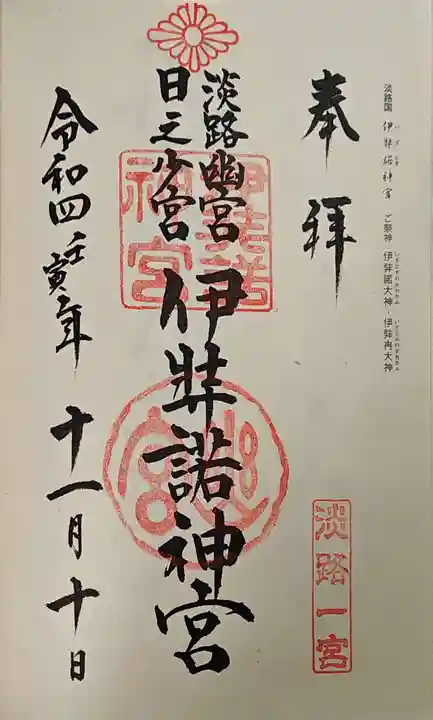 淡路国 伊弉諾神宮 ご祭神 伊弉諾大神・伊弉冉大神
奉拝
淡路一宮
淡路幽宮
日之少宮
伊弉諾神宮
伊弉諾
神宮
幽宮
令和四壬寅年 十一月十日